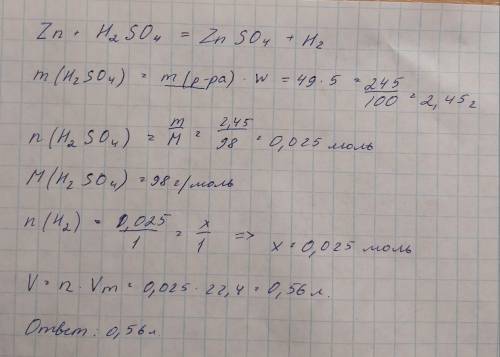 Zn + H₂SO₄ = ZnSO₄ + H₂
m(H₂SO₄) = m(р-ра) · w = 49 · 5 = 245/100 = 2,45 г
n(H₂SO₄) = m/M = 2,45/98 = 0,025 моль
M(H₂SO₄) = 98 г/моль
n(H₂) = 0,025/1 = x/1 => x = 0,025 моль
V = n · Vm = 0,025 · 22,4 = 0,56 л.
Ответ: 0,56 л.